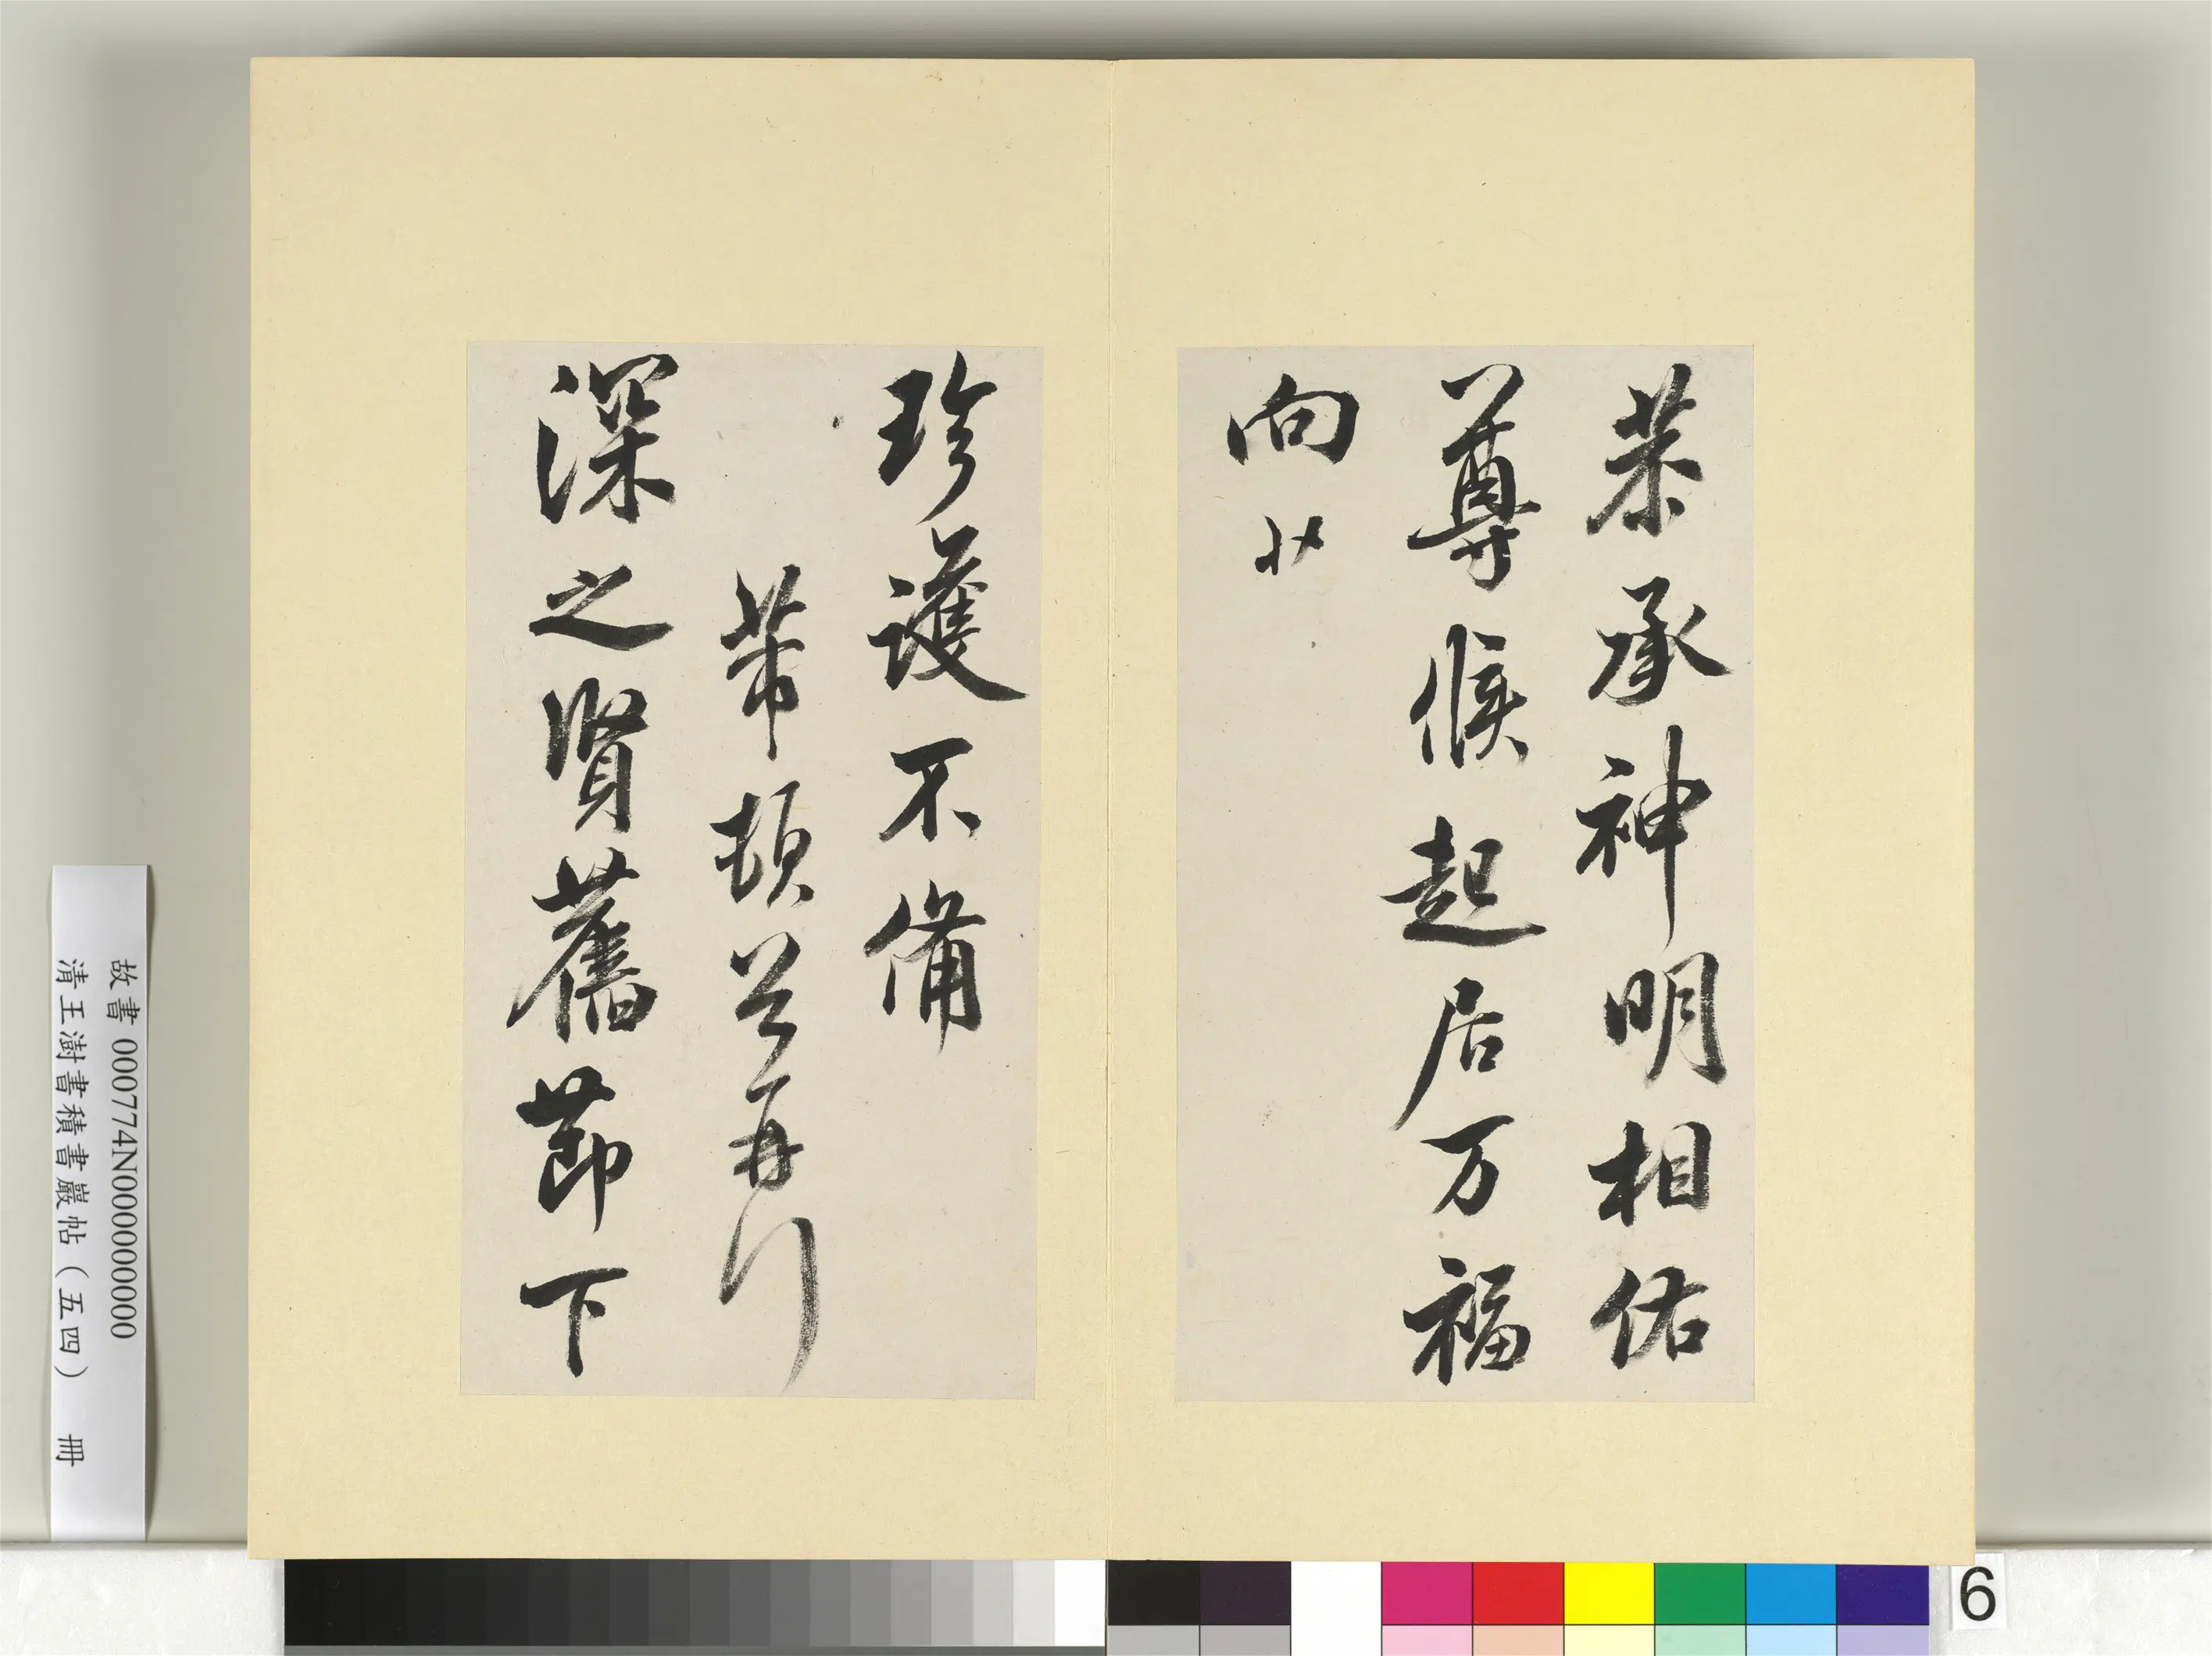 恭承神明相佑
尊候起居万福
向火
珍護不備
芾頓首再行
深之賢舊節下
故書 000774N000000000
清王澍書積書巖帖（五四） 冊
6